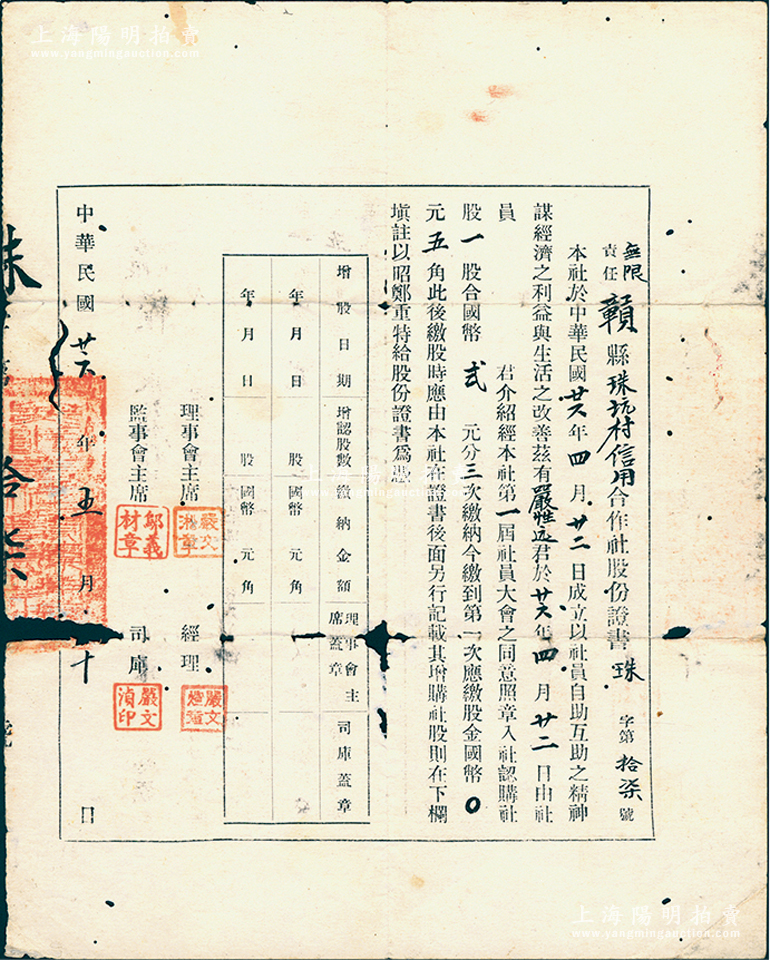 上海陽明拍賣
www.yangmingauction.com
無限
責任 贛縣珠坑村信用合作社股份證書 珠字第拾柒號
本社於中華民國廿六年四月廿二日成立以社員自助互助之精神
謀經濟之利益與生活之改善茲有嚴甡远君於廿六年四月廿二日由社
員 君介紹經本社第一屆社員大會之同意照章入社認購社
股一股合國幣弍元分三次繳納今繳到第一次應繳股金國幣0
元五角此後繳股時應由本社在證書後面另行記載其增購社股則在下欄
塡註以昭鄭重特給股份證書爲憑
增股日期 增認股數 繳納金額 理事會主席蓋章 司庫蓋章
年月日 股 國幣 元角
年月日 股 國幣 元角
理事會主席 經理
監事會主席 鄔義材章 司庫 嚴文湞印
中華民國廿六年五月十日
上海陽明拍賣
www.yangmingauction.com
上海陽明拍賣
www.yangmingauction.com